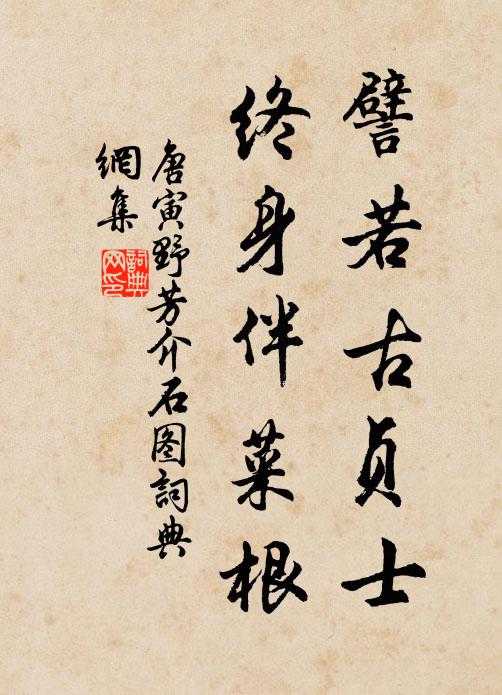 譬若古貞士
終身伴菜根
唐寅野芳介石图詞典
網集
詞典网印